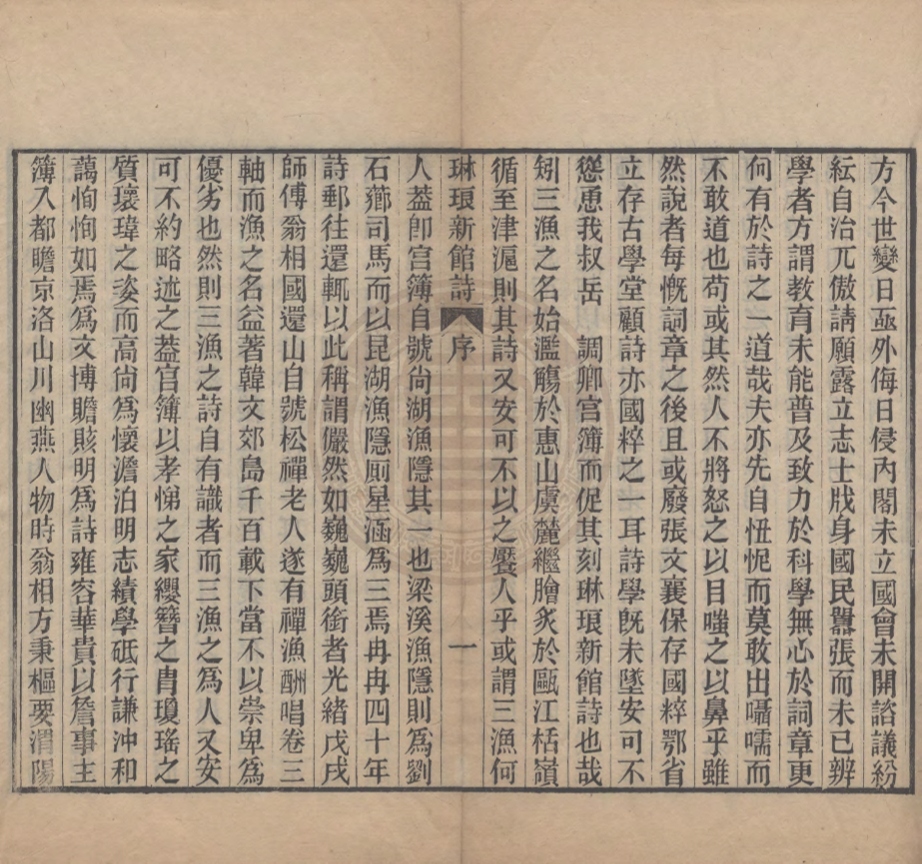 方今世變日亟外侮日侵內閣未立國會未開諮議紛
紜自治兀傲請願露立志士戕身國民囂張而未已辨
學者方謂教育未能普及致力於科學無心於詞章更
何有於詩之一道哉夫亦先自忸怩而莫敢出囁嚅而
不敢道也苟或其然人不將怒之以目嗤之以鼻乎雖
然說者每慨詞章之後且或廢張文襄保存國粹鄂省
立存古學堂顧詩亦國粹之一耳詩學既未墜安可不
慫恿我叔岳 調卿宮簿而促其刻琳琅新館詩也哉
矧三漁之名始濫觴於惠山虞麓繼膾炙於甌江栝嶺
循至津滬則其詩又安可不以之饜人乎或謂三漁何
琳琅新館詩 序 一
人葢卽宮簿自號尙湖漁隱其一也梁溪漁隱則爲劉
石薌司馬而以昆湖漁隱厠星涵爲三焉冉冉四十年
詩郵往還輒以此稱謂儼然如巍巍頭銜者光緒戊戌
師傅翁相國還山自號松禪老人遂有禪漁酬唱卷三
軸而漁之名益著韓文郊島千百載下當不以崇卑爲
優劣也然則三漁之詩自有識者而三漁之爲人又安
可不約略述之葢官簿以孝悌之家纓簪之胄瓊瑤之
質瓌瑋之姿而高尙爲懷澹泊明志績學砥行謙沖和
藹恂恂如焉爲文博贍賅明爲詩雍容華貴以詹事主
簿入都瞻京洛山川幽燕人物時翁相方秉樞要渭陽